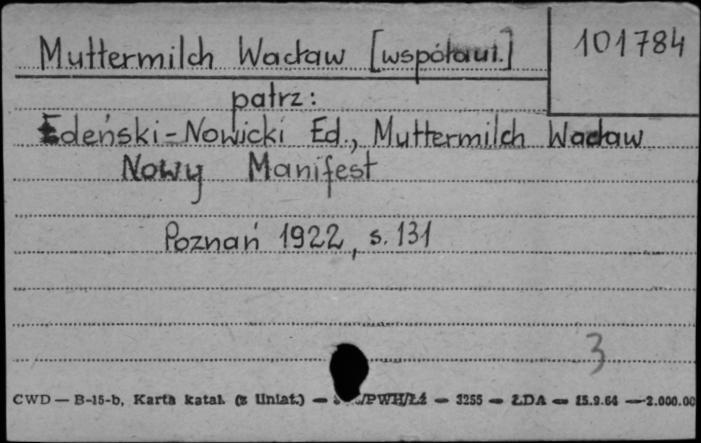 Muttermilch Wacław [współaut.]
101784
patrz:
Edeński-Nowicki Ed., Muttermilch Wacław
Nowy Manifest
Poznań 1922, s. 131
3
CWD — B-15-b, Karta katal. (z liniat.) — /PWH/Łź — 3255 — ŁDA — 15.9.64 — 2.000.00